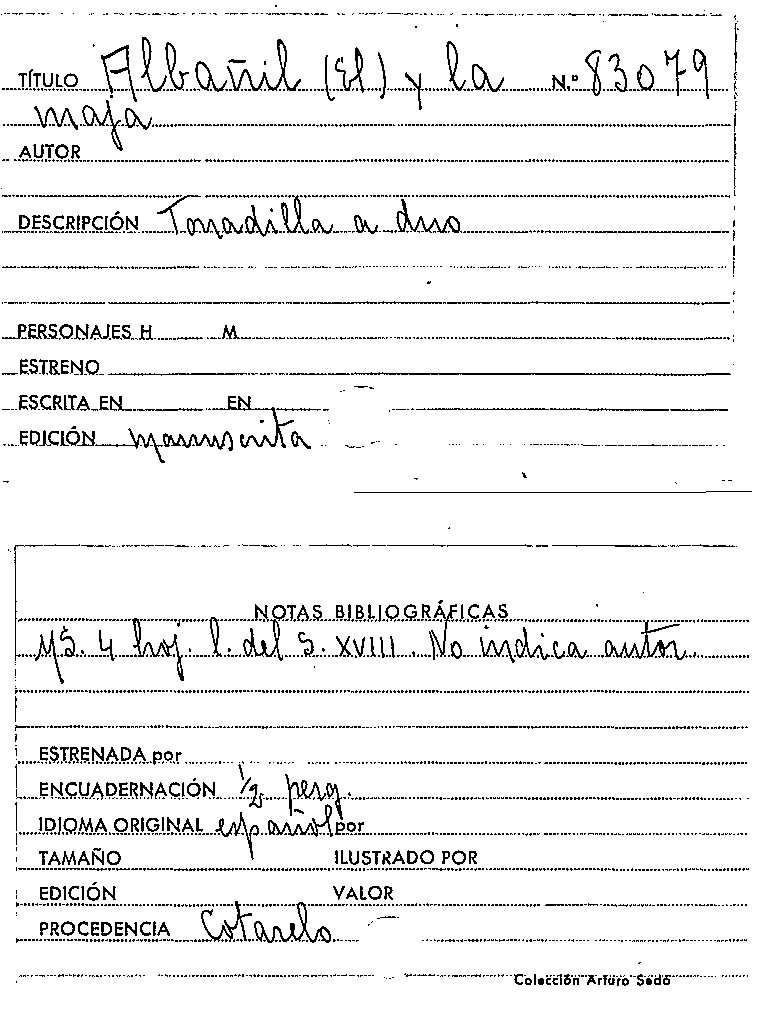 TÍTULO Albañil (El) y la N.º 83079
maja
AUTOR
DESCRIPCIÓN Tonadilla a duo
PERSONAJES H M
ESTRENO
ESCRITA EN EN
EDICIÓN manuscrita
NOTAS BIBLIOGRÁFICAS
MS. 4 hoj. l. del S. XVIII. No indica autor.
ESTRENADA por
ENCUADERNACIÓN 1/2 perg.
IDIOMA ORIGINAL español por
TAMAÑO ILUSTRADO POR
EDICIÓN VALOR
PROCEDENCIA Cotarelo
Colección Arturo Sedó